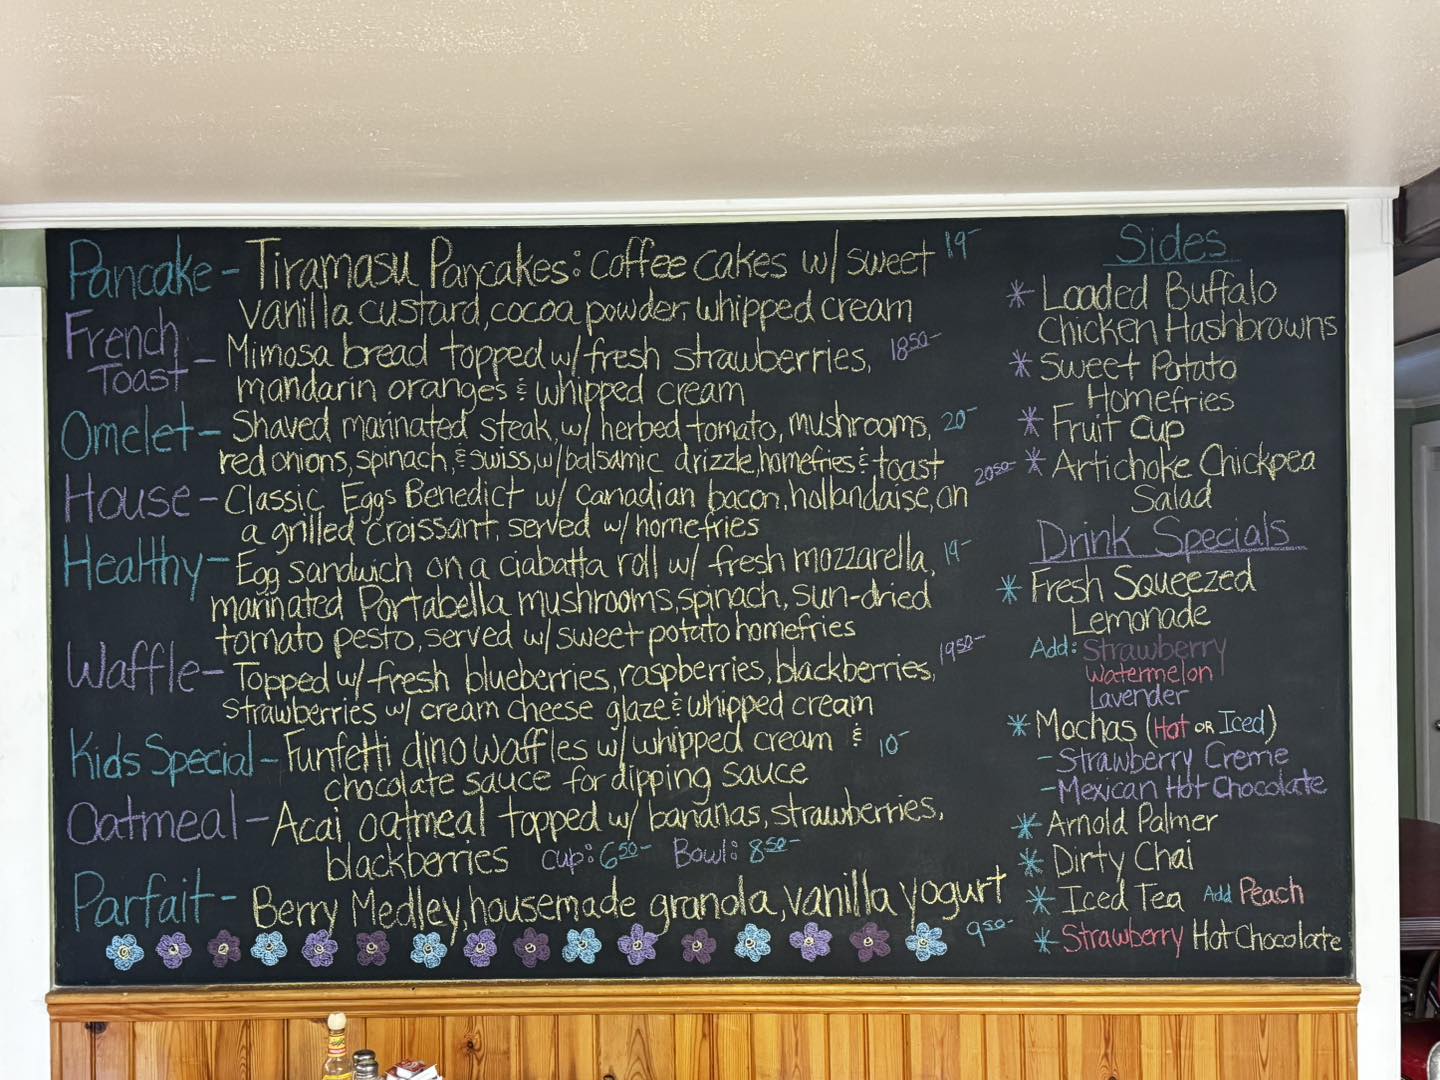 Pancake - Tiramasu Pancakes: coffee cakes w/ sweet 19-
vanilla custard, cocoa powder, whipped cream
French
Toast - Mimosa bread topped w/ fresh strawberries, 18.50-
mandarin oranges & whipped cream
Omelet - Shaved marinated steak, w/ herbed tomato, mushrooms, 20-
red onions, spinach, & swiss, w/ balsamic drizzle, homefries & toast
House - Classic Eggs Benedict w/ Canadian bacon, hollandaise, on 20.50-
a grilled croissant, served w/ homefries
Healthy - Egg sandwich on a ciabatta roll w/ fresh mozzarella, 19-
marinated Portabella mushrooms, spinach, sun-dried
tomato pesto, served w/ sweet potato homefries
Waffle - Topped w/ fresh blueberries, raspberries, blackberries, 19.50-
strawberries w/ cream cheese glaze & whipped cream
Kids Special - Funfetti dino waffles w/ whipped cream & 10-
chocolate sauce for dipping sauce
Oatmeal - Acai oatmeal topped w/ bananas, strawberries,
blackberries Cup: 6.50- Bowl: 8.50-
Parfait - Berry Medley, housemade granola, vanilla yogurt
9.50-
Sides
* Loaded Buffalo
Chicken Hashbrowns
* Sweet Potato
Homefries
* Fruit Cup
* Artichoke Chickpea
Salad
Drink Specials
* Fresh Squeezed
Lemonade
Add: Strawberry
Watermelon
Lavender
* Mochas (Hot or Iced)
- Strawberry Creme
- Mexican Hot Chocolate
* Arnold Palmer
* Dirty Chai
* Iced Tea Add Peach
* Strawberry Hot Chocolate